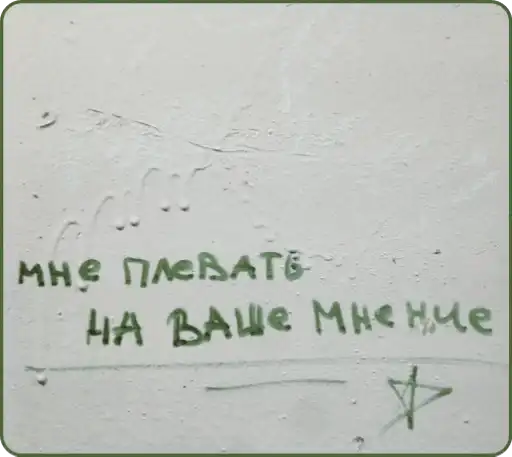 мне плевать
на ваше мнение